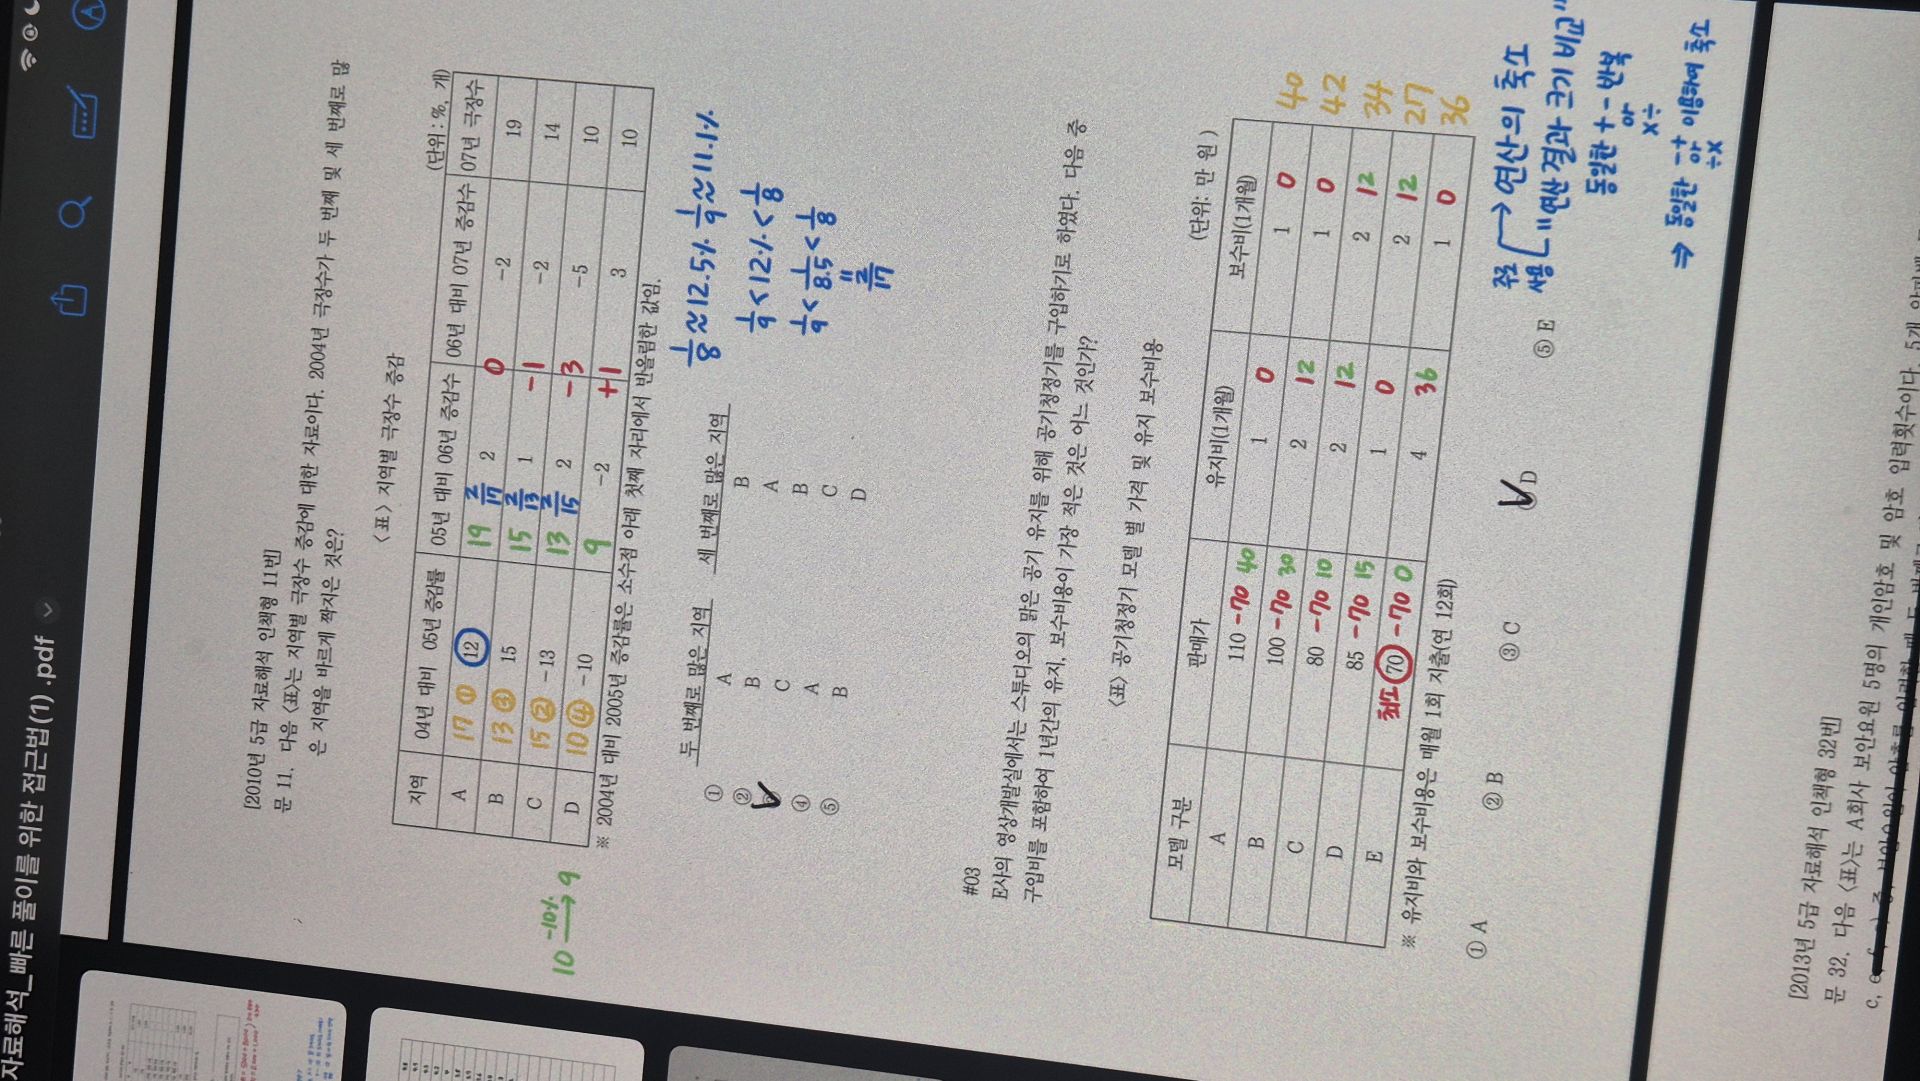 자료해석_빠른 풀이를 위한 접근법(1) .pdf
[2010년 5급 자료해석 인책형 11번]
문 11. 다음 <표>는 지역별 극장수 증감에 대한 자료이다. 2004년 극장수가 두 번째 및 세 번째로 많
은 지역을 바르게 짝지은 것은?
<표> 지역별 극장수 증감
(단위 : %, 개)
지역 04년 대비 05년 증감률 05년 대비 06년 증감수 06년 대비 07년 증감수 07년 극장수
A 17 ① 12 19 2/17 2 0 -2 19
B 13 ③ 15 15 2/13 1 -1 -2 14
C 15 ② -13 13 2/15 2 -3 -5 10
D 10 ④ -10 9 -2 +1 3 10
10 -10% → 9
※ 2004년 대비 2005년 증감률은 소수점 아래 첫째 자리에서 반올림한 값임.
두 번째로 많은 지역 세 번째로 많은 지역
① A B
② B A
C B
④ A C
⑤ B D
1/8 ≈ 12.5% 1/9 ≈ 11.1%
1/9 < 12% < 1/8
1/9 < 1/8.5 < 1/8
=
2/17
#03
E사의 영상개발실에서는 스튜디오의 맑은 공기 유지를 위해 공기청정기를 구입하기로 하였다. 다음 중
구입비를 포함하여 1년간의 유지, 보수비용이 가장 적은 것은 어느 것인가?
<표> 공기청정기 모델 별 가격 및 유지 보수비용
(단위: 만 원)
모델 구분 판매가 유지비(1개월) 보수비(1개월)
A 110 -70 40 1 0 1 0 40
B 100 -70 30 2 12 1 0 42
C 80 -70 10 2 12 2 12 34
D 85 -70 15 1 0 2 12 27
E 최소 70 -70 0 4 36 1 0 36
※ 유지비와 보수비용은 매월 1회 지출(연 12회)
① A ② B ③ C D ⑤ E
주로 사용 → 연산의 축소
"연산 결과 크기 비교"
동일한 + - 반복
or
× ÷
⇒ 동일한 - + 이용하여 축소
or
÷ ×
[2013년 5급 자료해석 인책형 32번]
문 32. 다음 <표>는 A회사 보안요원 5명의 개인암호 및 암호 입력횟수이다. 5개 알파벳